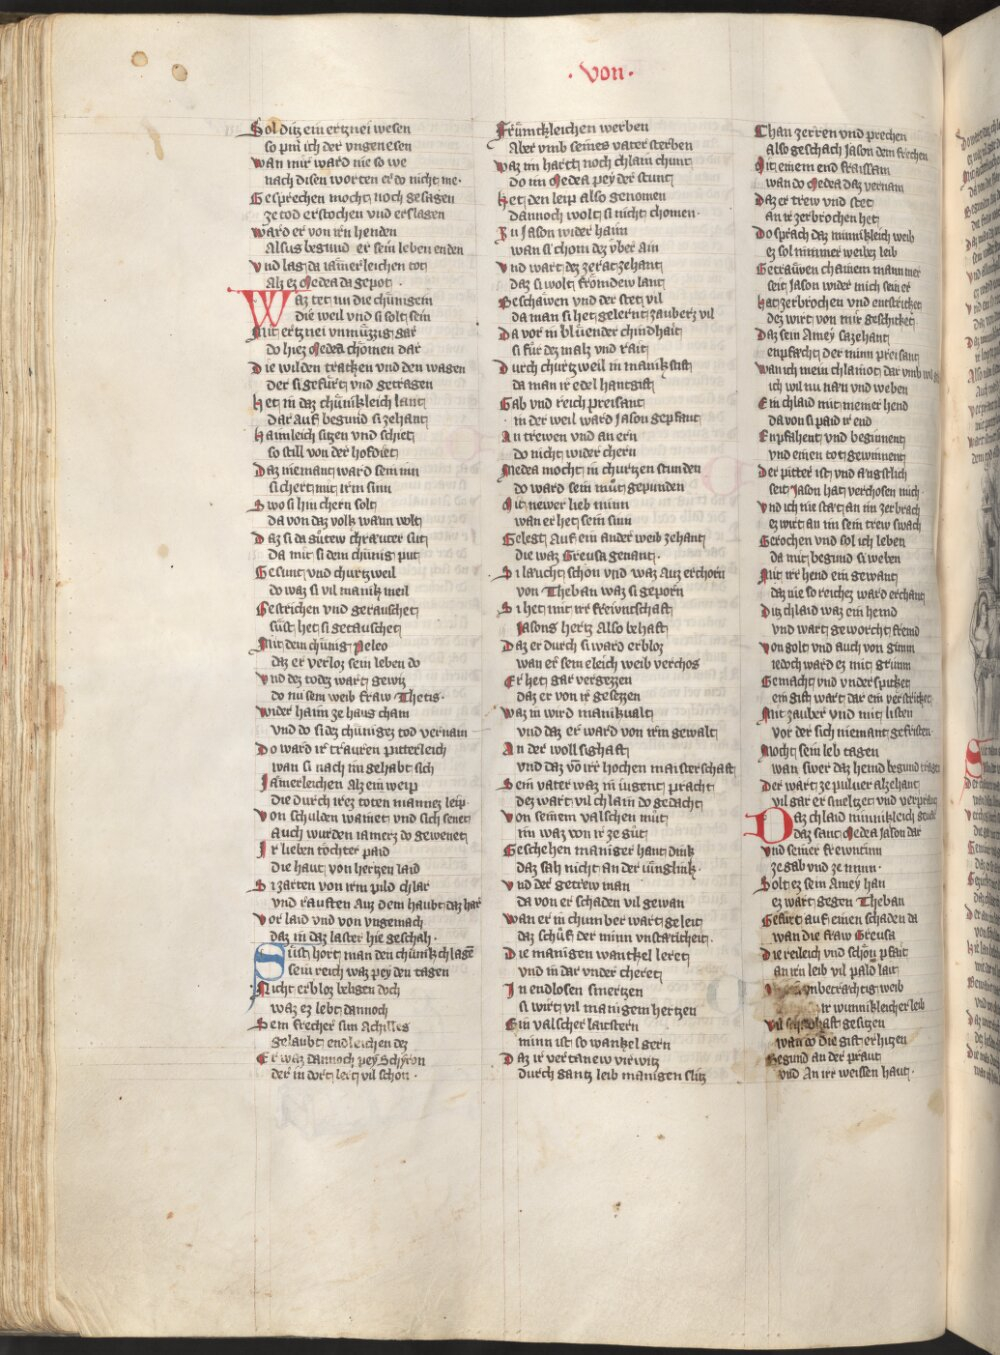 · von ·
Sol ditz ein ertznei wesen
so pin ich der vngenesen
wan mir ward nie so we
nach disen worten er do nicht me ·
Gesprechen mocht noch gesagen
ze tod erstochen vnd erslagen
ward er von irn henden
Alsus begund er sein leben enden
vnd lag da iamerleichen tot
Alz ez Medea da gepot ·
Waz tet nu die chünigein
die weil vnd si solt sein
Mit ertznei vnmüzzig gar
do hiez Medea chomen dar
Die wilden tracken vnd den wagen
der si gefürt vnd getragen
Het in daz chünikleich lant
dar auf begund si zehant
Haimleich sitzen vnd schiet
so still von der hofdiet
Daz niemant ward sein inn
sichert mit irm sinn
Swo si hin chern solt
da von daz volk wann wolt
Daz si da gütew chrauter süt
Da mit si dem chünig put
Gesunt vnd churtzweil
do waz si vil manik meil
Gestrichen vnd gerauschet
süst het si getauschet
Mit dem chünig Peleo
daz er verloz sein leben do
vnd dez todez wart gewiz
do nu sein weib fraw Thetis ·
wider haim ze haus cham
vnd do si dez chünigez tod vernam
Do ward ir trauren pitterleich
wan si nach im gehabt sich
Jamerleichen alz ein weip
die durch irez toten mannez leip
von schulden wainet vnd sich senet
auch wurden iamerz do gewenet
Ir lieben töchter paid
die haut von hertzen laid
Si zarten von irm pild chlar
vnd rauften auz dem haubt daz har
vor laid vnd von vngemach
daz in daz laster hie geschah ·
Süst hort man den chünik chlagen
sein reich waz pey den tagen
Nicht erbloz beligen doch
waz ez lebt dannoch
Sein frecher sun Achilles
gelaubt endleichen dez
Er waz dannoch pey Schyron
der in dort lert vil schon ·
Frümckleichen werben
Aber vmb seines vater sterben
waz im hartt noch chlain chunt
do im Medea pey der stunt
Het den leip also genomen
dannoch wolt si nicht chomen ·
Zu Jason wider haim
wan si chom dez vber ain
vnd wart dez ze rat zehant
daz si wolt frömdew lant
Beschawen vnd der stet vil
da man si het gelernt zauberz vil
Da vor in blüender chindhait
si für dez malz vnd rait
Durch churtzweil in manik stift
da man ir edel hantgift
Gab vnd reich preisant
in der weil ward Jason gepfant
An trewen vnd an ern
do nicht wider chern
Medea mocht in churtzen stunden
do ward sein müt gepunden
Mit newer lieb minn
wan er het sein sinn
Gelegt auf ein ander weib zehant
die waz Greusa genant ·
Si laucht schon vnd waz auz erchorn
von Theban waz si geporn
Si het mit irr freiuntschaft
Jasons hertz also behaft
Daz er durch si ward erbloz
wan er sein eleich weib verchos
Er het gar vergezzen
daz er von ir gesezzen
waz in wird manikualt
vnd daz er ward von irm gewalt
An der woll sighaft
vnd daz von irr hochen maisterschaft
Sein vater waz in iugent pracht
dez wart vil chlain do gedacht
von seinem valschen müt
im waz von ir ze güt
Geschehen maniger haut dink
daz sah nicht an der iüngling ·
vnd der getrew man
da von er schaden vil gewan
wan er in chumber wart geleit
daz schüf der minn vnstaticheit ·
Die manigen wanckel leret
vnd in dar vnder cheret
In endlosen smertzen
si wirt vil manigem hertzen
Ein valscher laitstern
minn ist so wankel gern
Daz ir vertanew virwitz
durch gantz leib manigen slitz
Chan zerren vnd prechen
also geschach Jason dem frechen
Mit einem end fraissam
wan do Medea daz vernam
Daz er trew vnd stet
an ir zerbrochen het
Do sprach daz minnikleich weib
ez sol nimmer weibez leib
Getrauen chainem mann mer
seit Jason wider mich sein er
Hat zerbrochen vnd entstricket
dez wirt von mir geschicket
Daz sein Amey sa zehant
enpfacht der minn preisant
wan ich mein chlainot dar vmb wil
ich wil nu nan vnd weben
Ein chlaid mit meiner hend
da von si paid ir end
Enpfahent vnd beginnent
vnd einen tot gewinnent
Der pitter ist vnd angstlich
seit Jason hat verchosen mich ·
vnd ich nie stat an im zerbrach
ez wirt an im sein trew swach
Gerochen vnd sol ich leben
da mit begund si weben
Mit irr hend ein gewant
daz nie so reichez ward erchant
Ditz chlaid waz ein hemd
vnd wart geworcht fremd
von golt vnd auch von gimm
iedoch ward ez mit grimm
Gemacht vnd vnderspicket
ein gift wart dar ein verstricket
Mit zauber vnd mit listen
vor der sich niemant gefristen
Mocht sein leb tagen
wan swer daz hemd begund tragen
Der wart ze puluer alzehant
vil gar er smeltzet vnd verprant
Daz chlaid minnikleich
daz sant Medea Jason dar
vnd seiner frewntinn
ze gab vnd ze minn ·
Solt ez sein Amey han
ez wart gegen Theban
Gefürt auf einen schaden da
wan die fraw Greusa
Die reileich vnd schön pfait
an irn leib vil pald lait
vnbetrachtig weib
ir wunnikleicher leib
vil schadhaft gesitzen
wan do die gift erhitzen
Begund an der praut
vnd an irr weissen haut ·